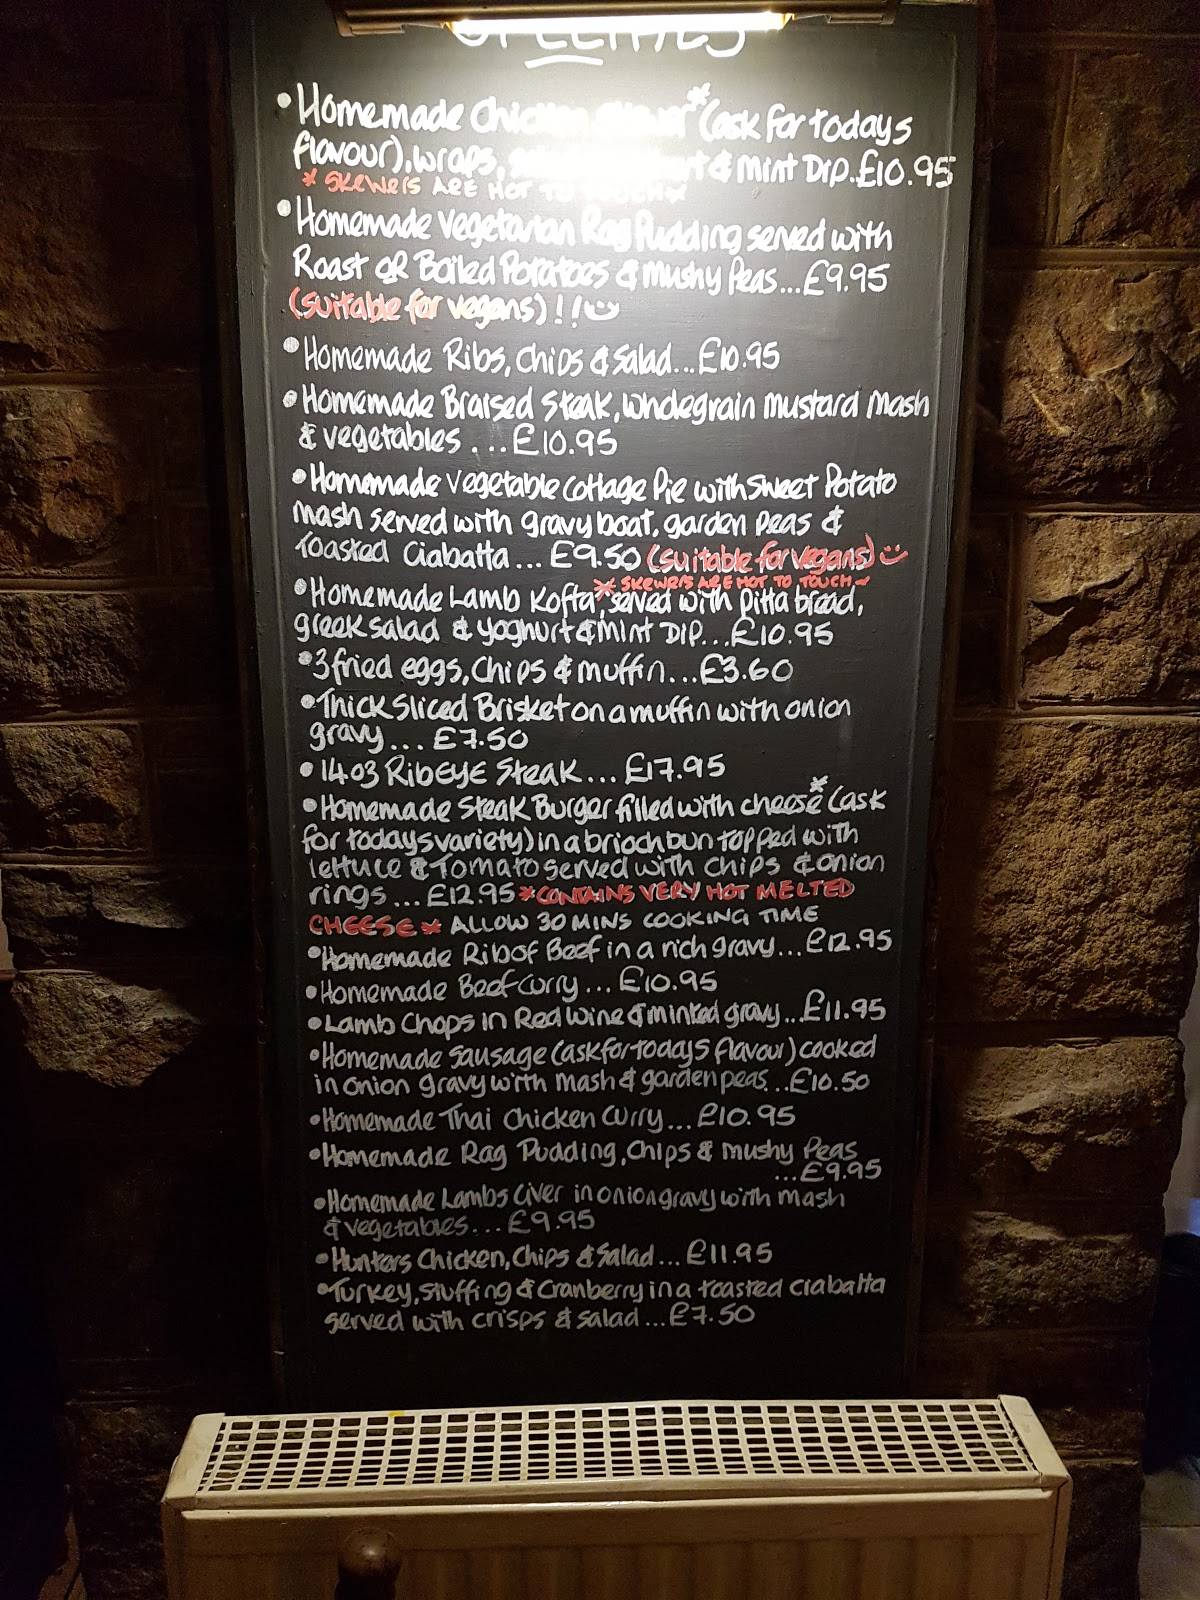 SPECIALS
• Homemade Chicken Skewer* (ask for todays
flavour), wraps, & mint Dip..£10.95
* SKEWERS ARE HOT TO TOUCH *
• Homemade Vegetarian Rag Pudding served with
Roast OR Boiled Potatoes & mushy Peas...£9.95
(suitable for vegans)!!
• Homemade Ribs, Chips & Salad...£10.95
• Homemade Braised Steak, wholegrain mustard mash
& vegetables ... £10.95
• Homemade Vegetable Cottage Pie with Sweet Potato
mash served with gravy boat, garden peas &
Toasted Ciabatta... £9.50 (suitable for vegans)
* SKEWERS ARE HOT TO TOUCH ~
• Homemade Lamb Kofta*, served with pitta bread,
greek salad & yoghurt & mint DIP...£10.95
• 3 fried eggs, Chips & muffin...£3.60
• Thick Sliced Brisket on a muffin with onion
gravy... £7.50
• 14oz RibEYE Steak...£17.95
• Homemade Steak Burger filled with cheese* (ask
for todays variety) in a brioch bun topped with
lettuce & Tomato served with chips & onion
rings...£12.95 *CONTAINS VERY HOT MELTED
CHEESE* ALLOW 30 MINS COOKING TIME
• Homemade Rib of Beef in a rich gravy...£12.95
• Homemade Beef Curry... £10.95
• Lamb Chops in Red Wine & minted gravy...£11.95
• Homemade Sausage (ask for todays flavour) cooked
in onion gravy with mash & garden peas...£10.50
• Homemade Thai Chicken Curry...£10.95
• Homemade Rag Pudding, Chips & mushy Peas
...£9.95
• Homemade Lambs Liver in onion gravy with mash
& vegetables...£9.95
• Hunters Chicken, Chips & Salad...£11.95
• Turkey, stuffing & Cranberry in a toasted ciabatta
served with crisps & salad...£7.50